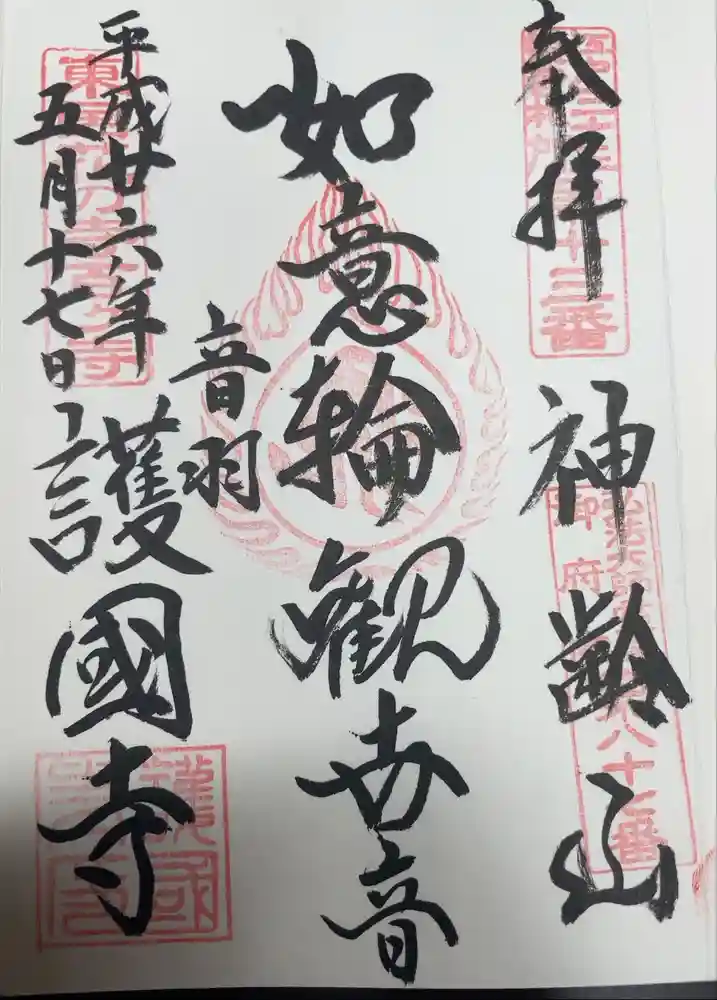 奉拝
神齢山
如意輪観世音
音羽
護國寺
平成廿六年
五月十七日
十三番
御府
八十七番